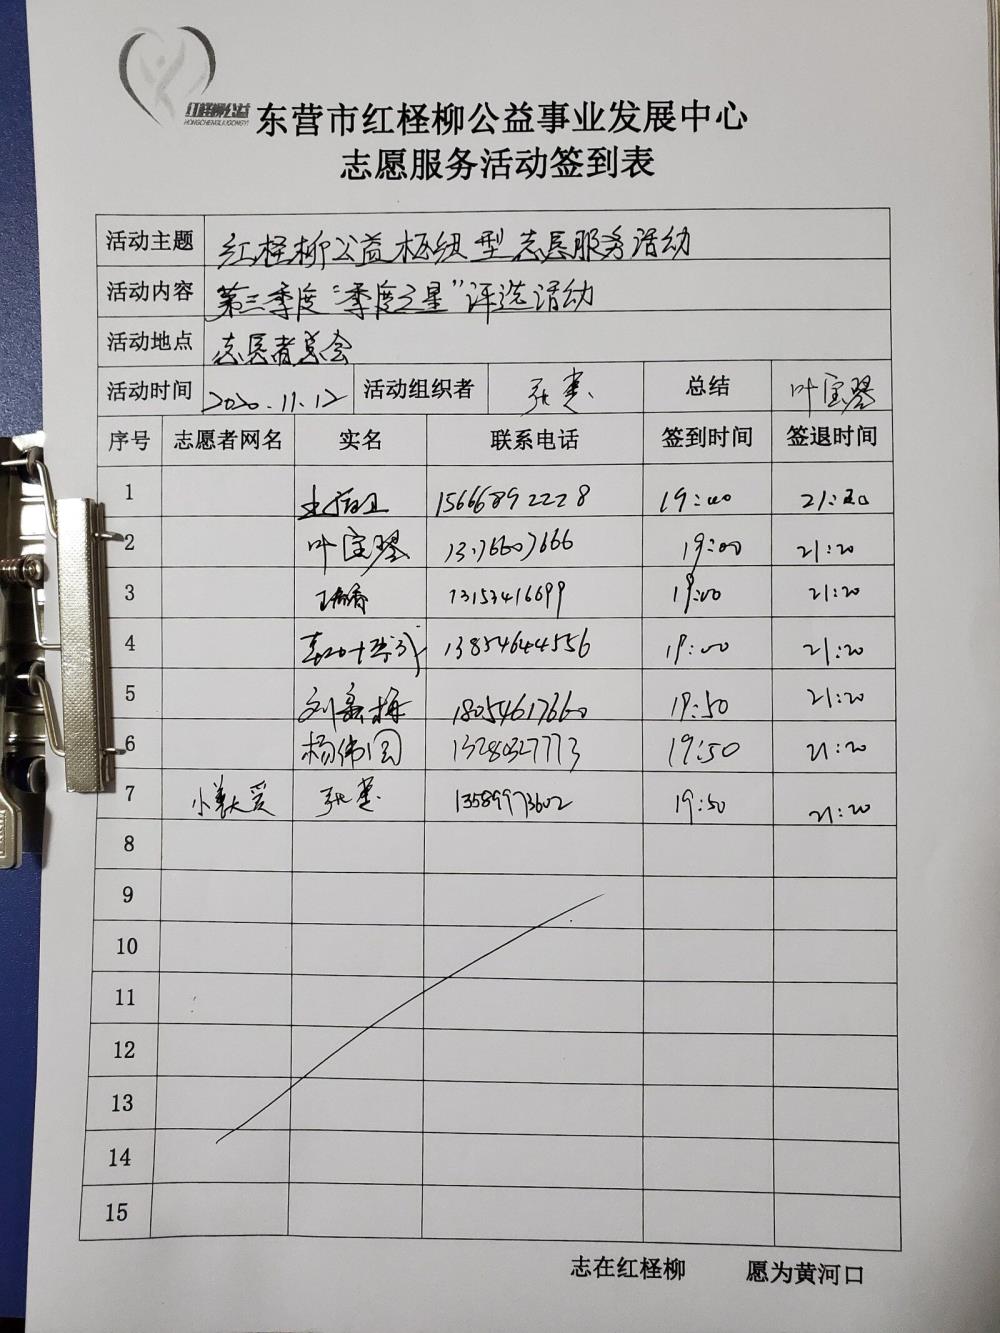 红柽柳公益
HONGCHENGLIUGONGYI
东营市红柽柳公益事业发展中心
志愿服务活动签到表
活动主题 红柽柳公益枢纽型志愿服务活动
活动内容 第三季度“季度之星”评选活动
活动地点 志愿者总会
活动时间 2020.11.12 活动组织者 张惠 总结 叶宝琴
序号 志愿者网名 实名 联系电话 签到时间 签退时间
1 15666892228 19:00 21:20
2 叶宝琴 13176607666 19:00 21:20
3 13153416699 19:00 21:20
4 13854644556 19:00 21:20
5 刘 梅 18054617660 19:50 21:20
6 杨伟国 13280327773 19:50 21:20
7 小美大爱 张惠 13589973602 19:50 21:20
8
9
10
11
12
13
14
15
志在红柽柳 愿为黄河口